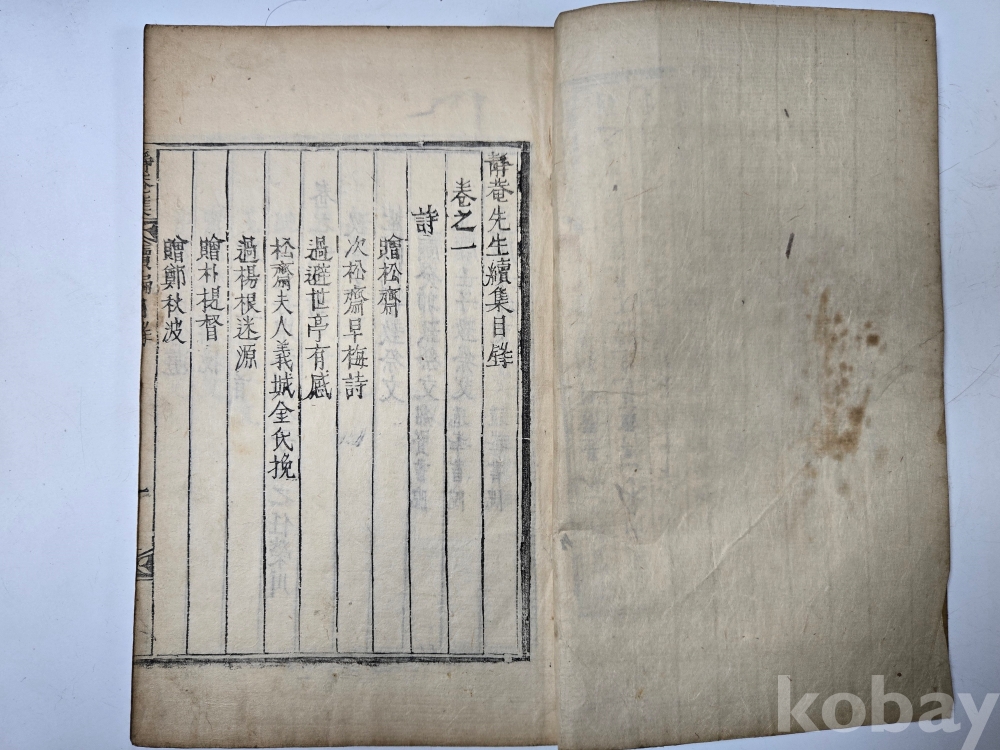 靜菴先生續集目錄
卷之一
詩
贈松齋
次松齋早梅詩
過避世亭有感
松齋夫人義城金氏挽
過楊根迷源
贈朴提督
贈鄭秋波
靜菴集
kobay